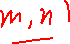 m, n)